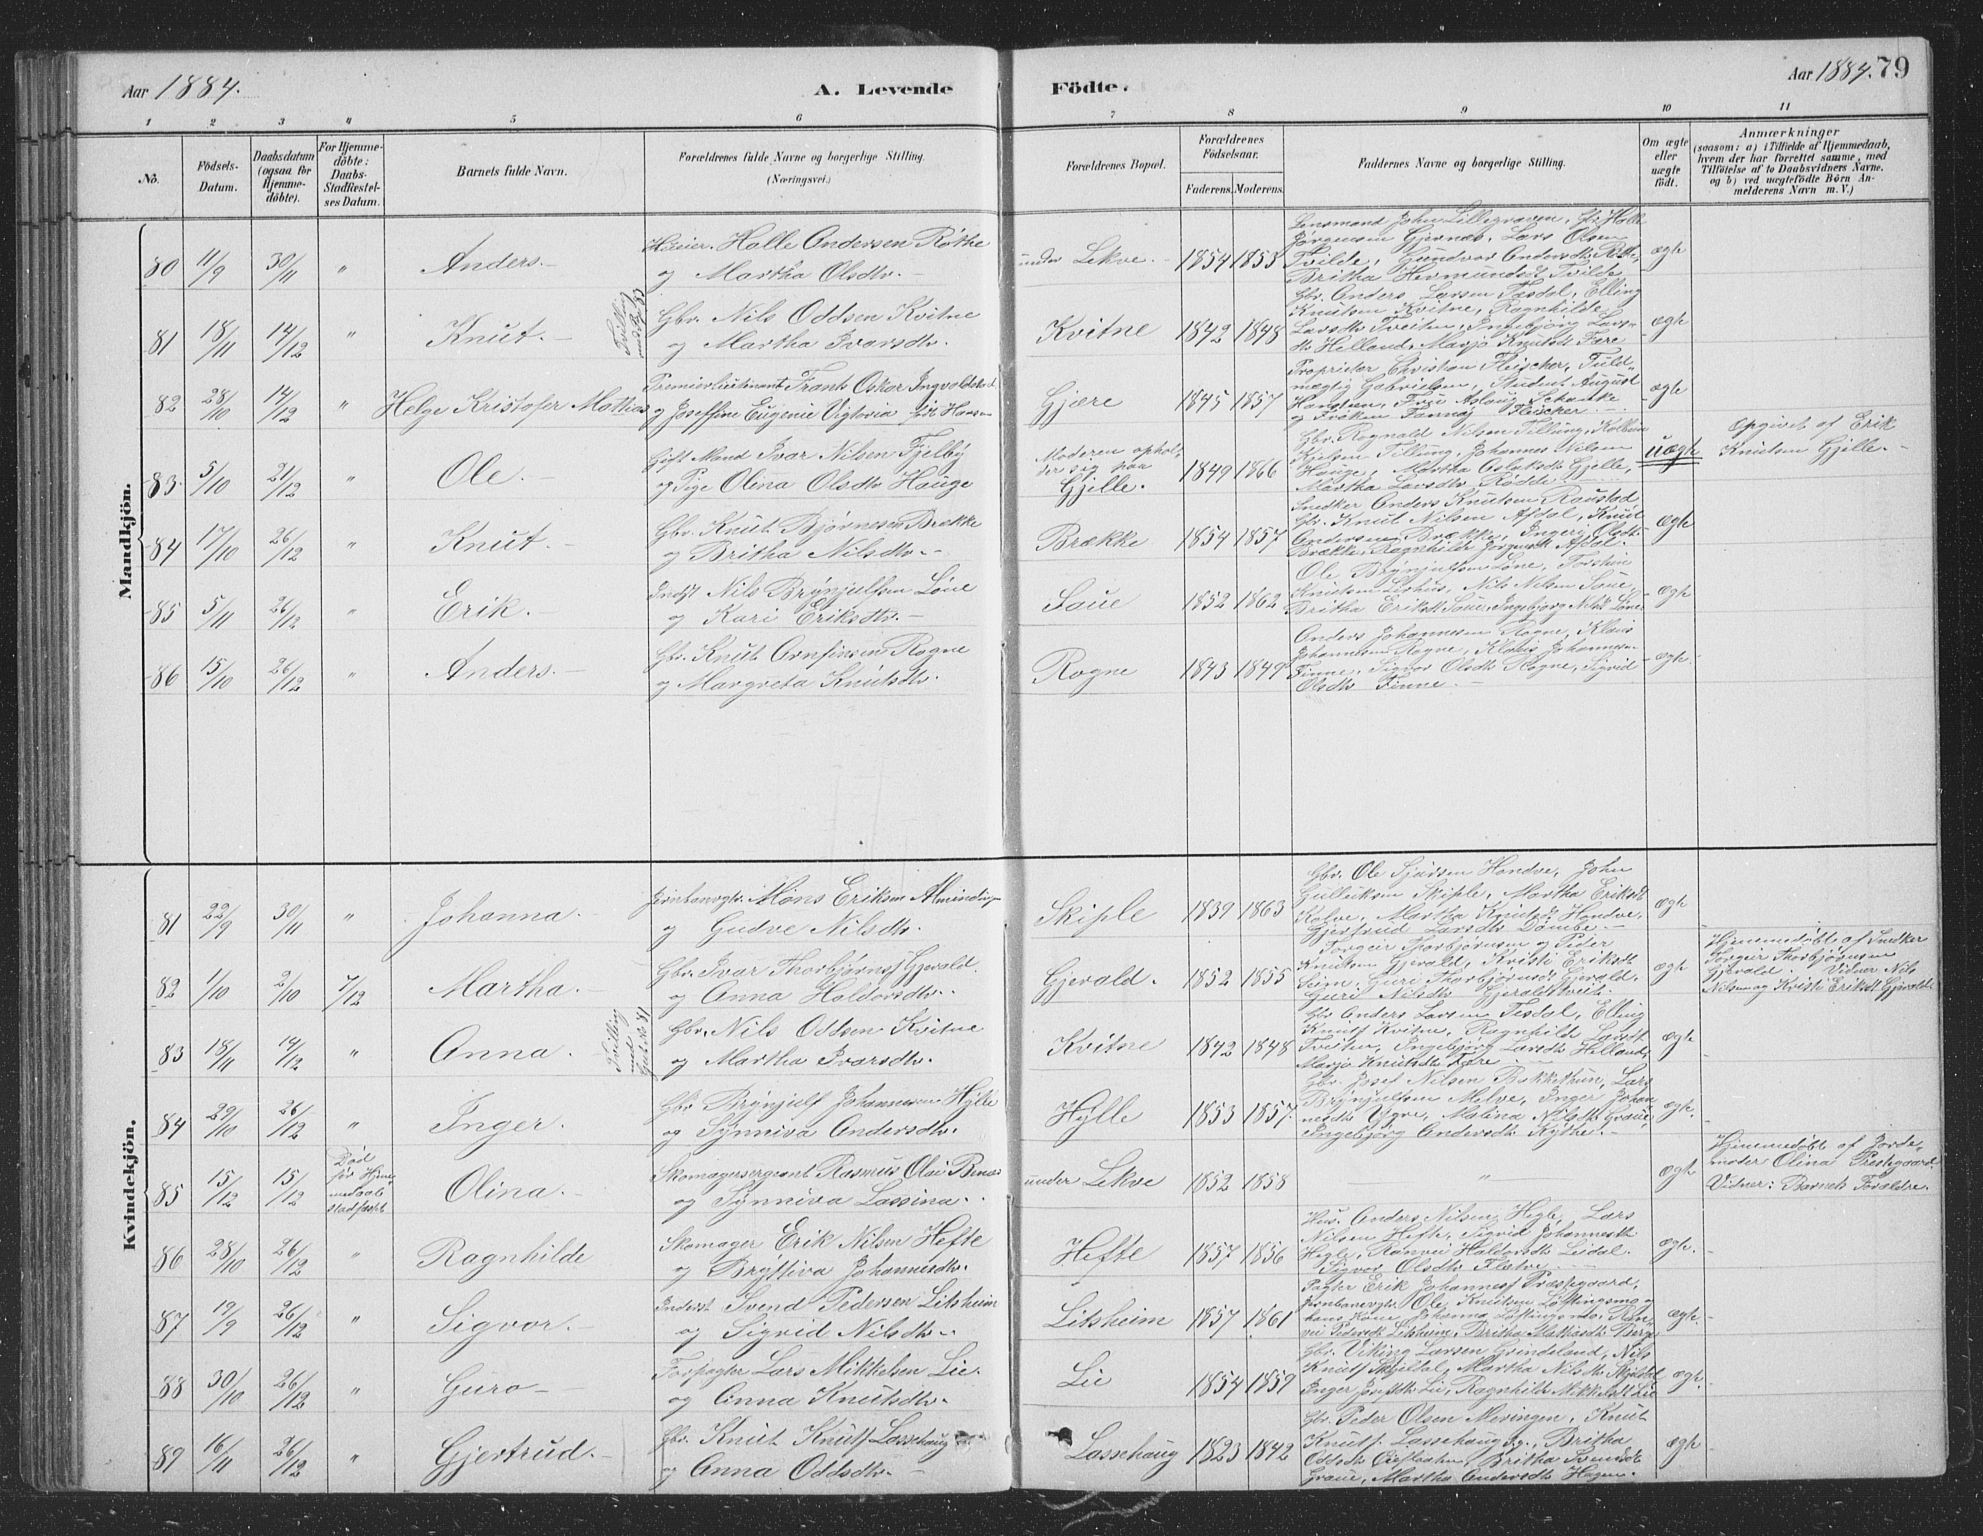 Aar 1884.
A. Levende Födte.
Aar 1884. 79
1 2 3 4 5 6 7 8 9 10 11
No.
Födsels-Datum.
Daabsdatum (ogsaa for Hjemme-döbte).
For Hjemme-döbte: Daabs-Stadfæstel-ses Datum.
Barnets fulde Navn.
Forældrenes fulde Navne og borgerlige Stilling.
(Næringsvei.)
Forældrenes Bopæl.
Forældrenes Födselsaar.
Faderens. Moderens.
Faddernes Navne og borgerlige Stilling.
Om ægte eller uægte födt.
Anmærkninger
(saasom: a) i Tilfælde af Hjemmedaab, hvem der har forrettet samme, med Tilföielse af to Daabsvidners Navne, og b) ved uægtefödte Börn An-melderens Navn m. V.)
Mandkjön.
80 11/9 30/11 " Anders.- Halle Andersen Röthe
og Martha Olsdtr.- under Lekve.- 1854 1853 Lensmand John Lillegraven,
Jørgensen Gjernæs, Lars Olsen
Tvilde, Gundvor Andersdtr
Britha Hermundsdt Tvilde ægte
81 18/11 14/12 " Knut.- Tvilling med Pg. 83 Gbr. Nils Oddsen Kvitne
og Martha Ivarsdtr. Kvitne 1842 1848 Gbr. Anders Larsen Tesdal, Elling
Knutsen Kvitne, Ragnhilde
Larsdtr Tveiten, Ingebjørg Lars-
dtr Helland, Marjo Knutsdt Føre ægte
82 28/10 14/12 " Helge Kristofer Mathias Premierlieutenant Frants Oskar Ingvoldstad
og Josefine Eugenie Vigtoria född Hansen Gjære 1845 1857 Proprietær Christian Fleischer, Fuld-
mægtig Gabrielsen, Student August
Hansen, Fru Aslaug Schanke
og Frøken Fanny Fleischer.- ægte
83 5/10 21/12 " Ole.- Gift Mand Ivar Nilsen Fjelby
og Pige Olena Olsdtr Hauge Moderen ophol-
der sig paa
Gjelle. 1849 1866 Gbr. Rognald Nilsen Tillung,
Kjelsen Tillung, Johannes Nilsen
Hauge, Martha Gjelle,
Martha Larsdtr uægte Opgivet af Erik
Knutsen Gjelle.-
84 17/10 26/12 " Knut.- Gbr. Knut Bjørnesen Brække
og Britha Nilsdtr.- Brække 1854 1857 Snedker Anders Knutsen Raustad
Gbr. Knut Nilsen Afdal, Knut
Andersen Brække, Ingerid Olsdtr
Brække, Ragnhilde Afdal. ægte
85 5/11 26/12 " Erik.- Indst Nils Brynjulfsen Løne
og Kari Eriksdtr.- Saue 1852 1862 Ole Brynjulfsen Løne, Torstein
Knutsen Nils Nilsen Saue,
Britha Eriksdt Saue, Ingebjørg Nilsdt Løne ægte
86 15/10 26/12 " Anders.- Gbr. Knut Arnfinsen Rogne
og Margreta Knutsdtr. Rogne 1843 1849 Anders Johannesen Rogne, Klaus
Johannesen Rogne, Johannes-
Finne, Sigvor Olsdtr Rogne, Sigrid
Olsdtr Finne.- ægte
Kvindekjön.
81 22/9 30/11 " Johanna.- Jernbanevgtr. Mons Eriksen Almindingen
og Gudve Nilsdtr. Skiple 1839 1863 Gbr. Ole Sjursen Hondve, John
Gulleiksen Skiple, Martha Eriksdt
Kalve, Martha Knutsdt Hondve,
Gjertrud Larsdtr Dömbe.- ægte
82 1/10 2/10 7/12 Martha.- Gbr. Ivar Thorbjørnsf Gjerald.
og Anna Haldorsdtr. Gjerald. 1852 1855 Torgeir Thorbjørnsen og Peder
Knutsen Gjerald, Kristi Eriksdt
Seim, Guri Thorbjørnsdt Gjerald.
Guri Nilsdtr Gjeraldtveit ægte Hjemmedöbt af Snedker
Torgeir Thorbjørnsen
Gjerald. Vidner Nils
Nilsen og Kristi Eriksdt Gjerald.
83 18/11 14/12 " Anna. Tvilling med Gut No. 81 Gbr. Nils Oddsen Kvitne
og Martha Ivarsdtr. Kvitne 1842 1848 Gbr. Anders Larsen Tesdal, Elling
Knutsf Kvitne, Ragnhilde Larsdt
Tveiten, Ingebjørg Larsdtr Helland,
Marjo Knutsdtr Føre.- ægte
84 29/10 26/12 " Inger. Gbr Brynjulf Johannesen Hylle
og Synniva Andersdtr. Hylle 1853 1857 Gbr. Josef Nilsen Bakkethun, Lars
Brynjulfsen Melve, Inger Johan-
nesdtr Ygre, Malina Nilsdtr Graue,
Ingebjørg Andersdtr Kythe.- ægte
85 15/12 15/12 Död før Hjem-
medaabs
stadfæstet Olina.- Skomagersergeant Rasmus Olai
og Synniva Lassina. under Lekve 1852 1858 " ægte Hjemmedöbt af Jorde-
moder Olina Prestegaard
Vidner: Barnets Forældre.
86 28/10 26/12 " Ragnhilde Skomager Erik Nilsen Hefte
og Bryttiva Johannesdtr. Hefte 1857 1856 Hus. Anders Nilsen Høgle, Lars
Nilsen Hefte, Sigrid Johannesdt
Høgle, Ranvei Haldorsdtr Leidal.
Sigvor Olsdtr ægte
87 19/9 26/12 " Sigvor.- Inderst Svend Pedersen Litsheim
og Sigrid Nilsdtr.- Litsheim 1857 1861 Pagter Erik Johannesf Præstegaard,
Jernbanevgtr. Ole Knutsen Løftingsmo og
hans Kone Johanna Løftingsmo, Ran-
vei Pedersdt Litsheim, Britha Mathiasdtr Berge ægte
88 30/10 26/12 " Guro.- Forpagter Lars Mikkelsen Lie.
og Anna Knutsdtr. Lie 1854 1859 Gbr. Viking Larsen Grindeland, Nils
Knutsf Skjeldal, Martha Nilsdtr Skjeldal
Inger Lie, Ragnhilde Mikkelsdt Lie ægte
89 16/11 26/12 " Gjertrud.- Gbr. Knut Knutsf Lassehaug
og Anna Oddsdtr.- Lassehaug 1823 1842 Gbr. Peder Olsen Meringen, Knut
Knutsf. Lassehaug, Britha
Oddsdtr Britha Svensdt
Graue, Martha Andersdtr Hagen. ægte